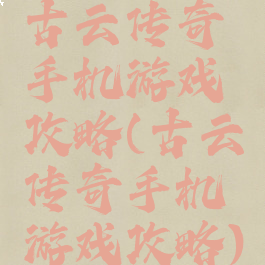 古云传奇
手机游戏
攻略(古云
传奇手机
游戏攻略)